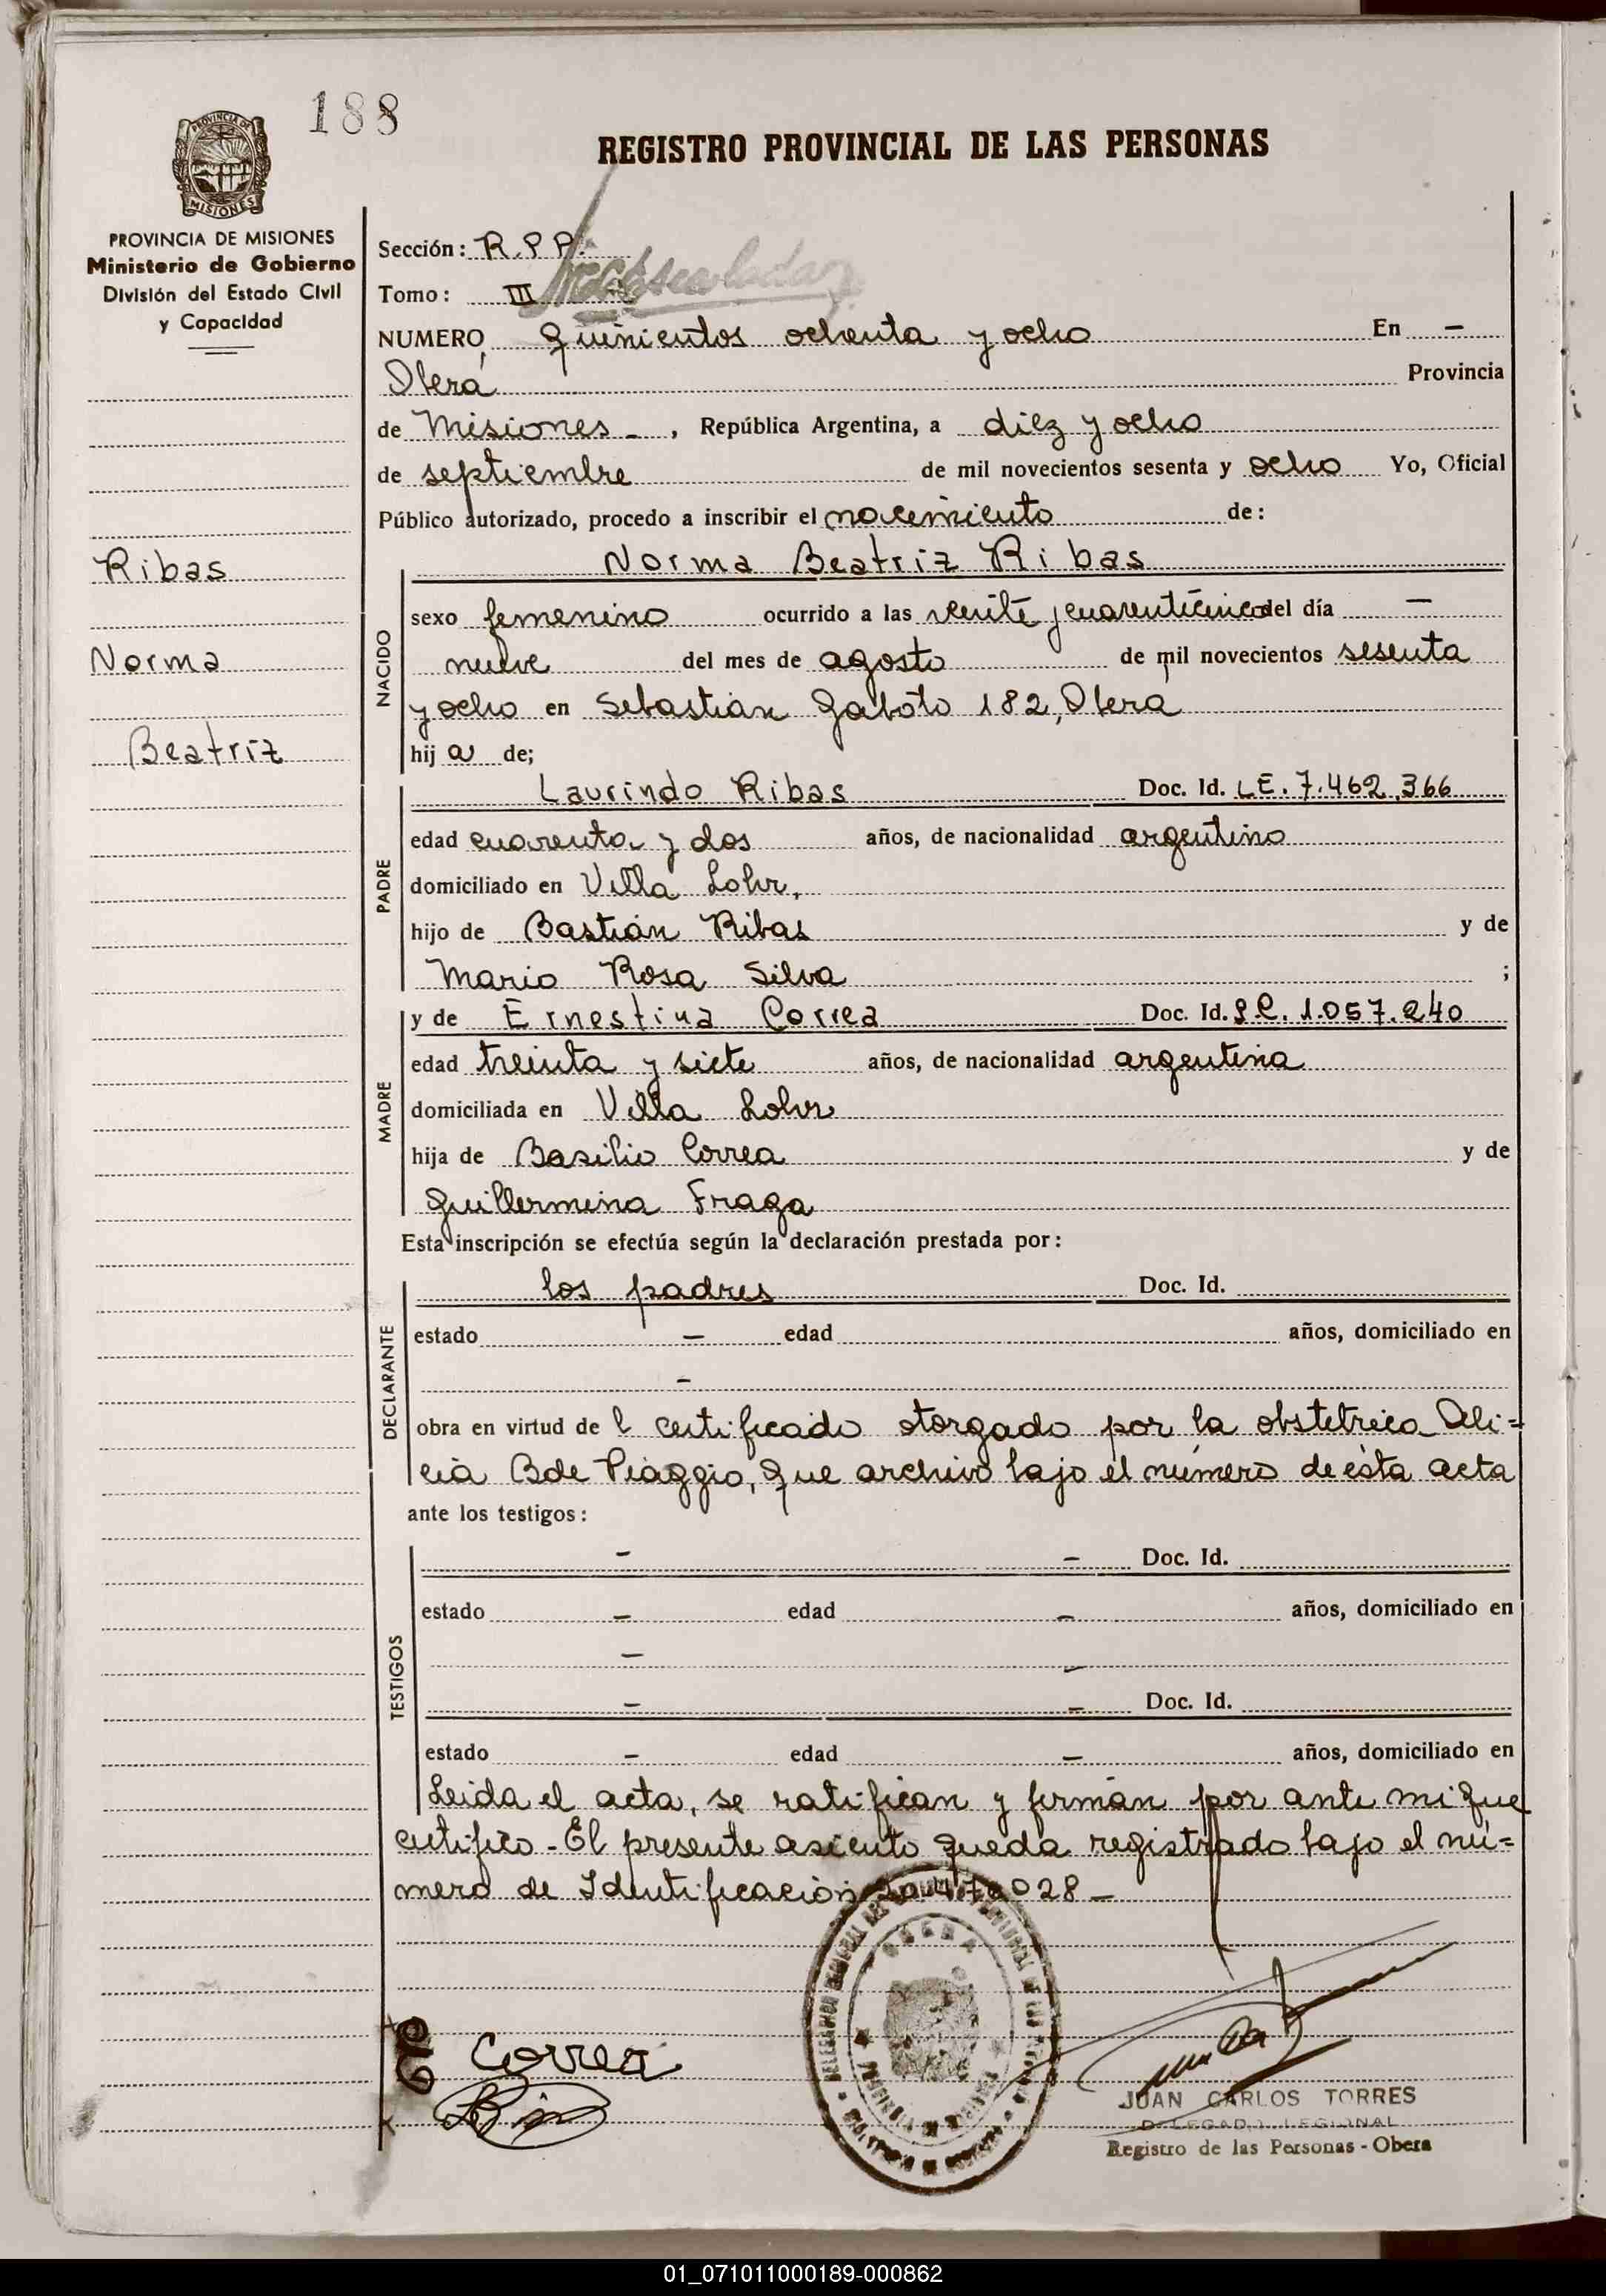 188
REGISTRO PROVINCIAL DE LAS PERSONAS
PROVINCIA DE
MISIONES
PROVINCIA DE MISIONES
Ministerio de Gobierno
División del Estado Civil
y Capacidad
Ribas
Norma
Beatriz
Sección: R.P.P.
Tomo: III
NUMERO quinientos ochenta y ocho En –
Oberá Provincia
de Misiones -, República Argentina, a diez y ocho
de septiembre de mil novecientos sesenta y ocho Yo, Oficial
Público autorizado, procedo a inscribir el nacimiento de:
Norma Beatriz Ribas
NACIDO
sexo femenino ocurrido a las veinte y cuarenticinco del día –
nueve del mes de agosto de mil novecientos sesenta
y ocho en Sebastián Gaboto 182, Oberá
hij a de;
PADRE
Laurindo Ribas Doc. Id. LE. 7.462.366
edad cuarenta y dos años, de nacionalidad argentino
domiciliado en Villa Lohr,
hijo de Bastián Ribas y de
Maria Rosa Silva ;
MADRE
y de Ernestina Correa Doc. Id. L.C. 1.057.240
edad treinta y siete años, de nacionalidad argentina
domiciliada en Villa Lohr
hija de Basilio Correa y de
Guillermina Fraga
Esta inscripción se efectúa según la declaración prestada por:
DECLARANTE
los padres Doc. Id.
estado – edad años, domiciliado en
–
obra en virtud de l certificado otorgado por la obstetrica Ali=
cia B de Piaggio, que archivo bajo el número de ésta acta
ante los testigos:
TESTIGOS
– – Doc. Id.
estado – edad – años, domiciliado en
– –
– – Doc. Id.
estado – edad – años, domiciliado en
Leida el acta, se ratifican y firman por ante mi que
certifico - El presente asiento queda registrado bajo el nú=
mero de Identificación 028 –
Correa
JUAN CARLOS TORRES
DELEGADO REGIONAL
Registro de las Personas - Obera
01_071011000189-000862